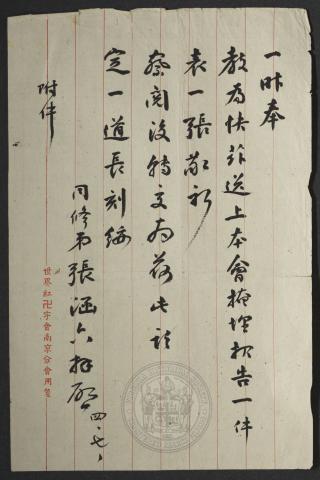 一昨奉
教為快茲送上本會掩埋報告一件
表一張敬祈
察閱後轉交為荷此頌
定一道長刻綏
同修弟張涵六拜啟 四、七、
附件
世界紅卍字會南京分會用箋